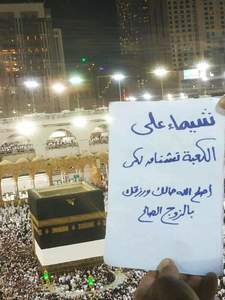 شيماء علي
الكعبة تشتاقه لكم
أصلح الله حالك ورزقك
بالزوج الصالح